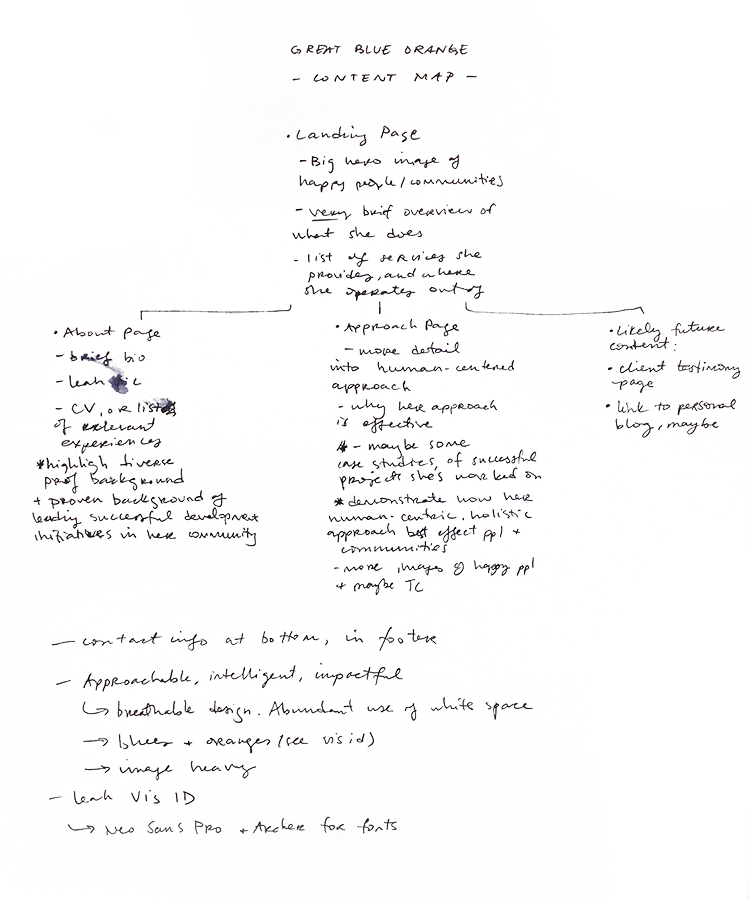 GREAT BLUE ORANGE
- CONTENT MAP -
• Landing Page
- Big hero image of
happy people/communities
- very brief overview of
what she does
- list of services she
provides, and where
she operates out of
• About page
- brief bio
- leah pic
- CV, or lists
of relevant
experiences
*highligh diverse
prof background
+ proven background of
leading successful development
initiatives in her community
• Approach Page
- more detail
into human-centered
approach
- why her approach
is effective
- maybe some
case studies, of successful
projects she's worked on
* demonstrate how her
human-centric, holistic
approach best effect ppl +
communities
- more images of happy ppl
+ maybe TC
• Likely future
content:
• client testimony
page
• link to personal
blog, maybe
— contact info at bottom, in footer
— Approachable, intelligent, impactful
↳ breathable design. Abundant use of white space
→ blues + oranges (see vis id)
→ image heavy
- leah Vis ID
↳ Neo Sans Pro + Archer for fonts